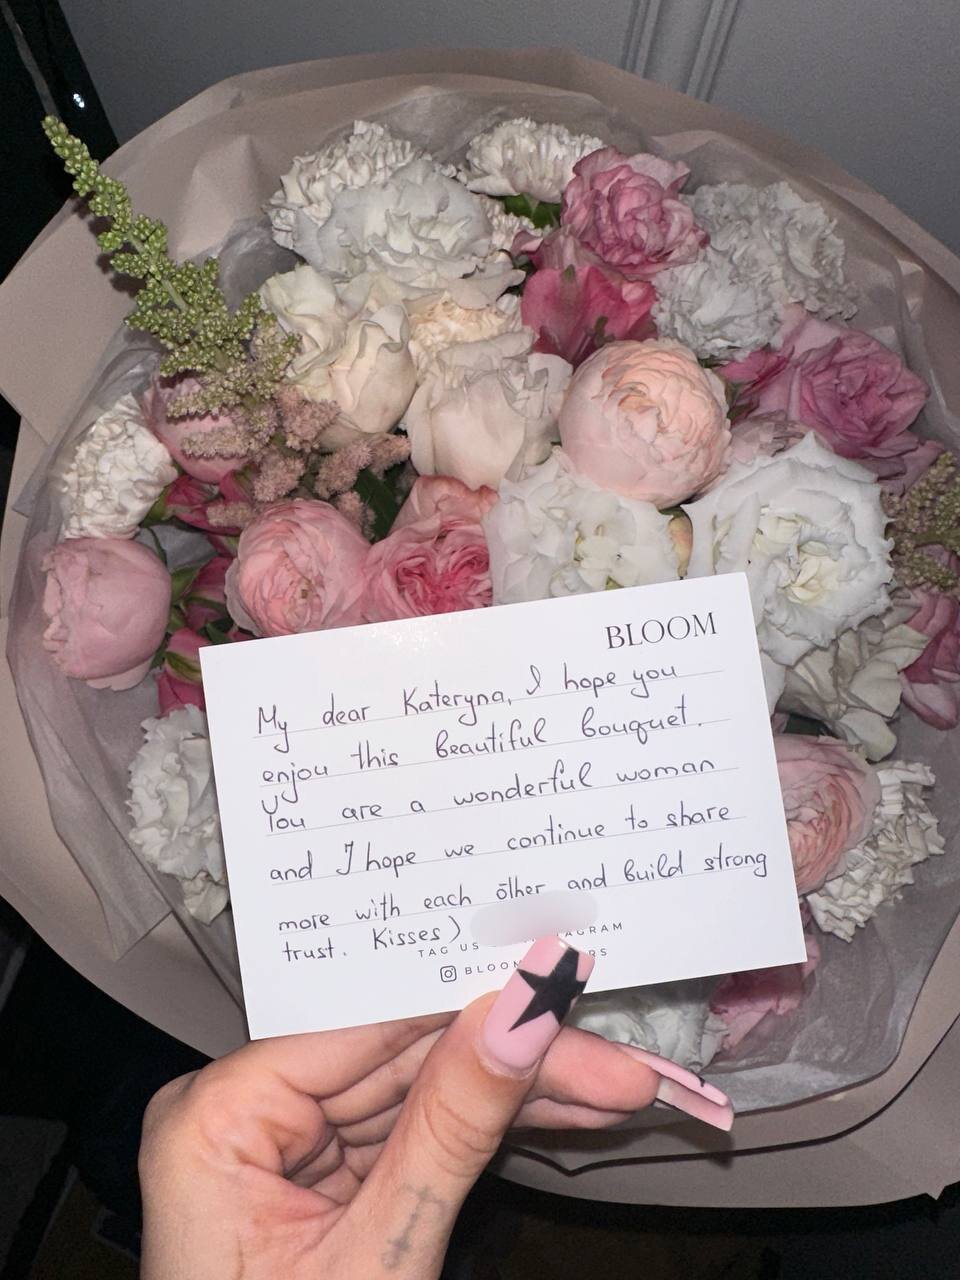 BLOOM
My dear Kateryna, I hope you
enjoy this beautiful bouquet.
You are a wonderful woman
and I hope we continue to share
more with each other and build strong
trust. Kisses)
TAG US
BLOOM